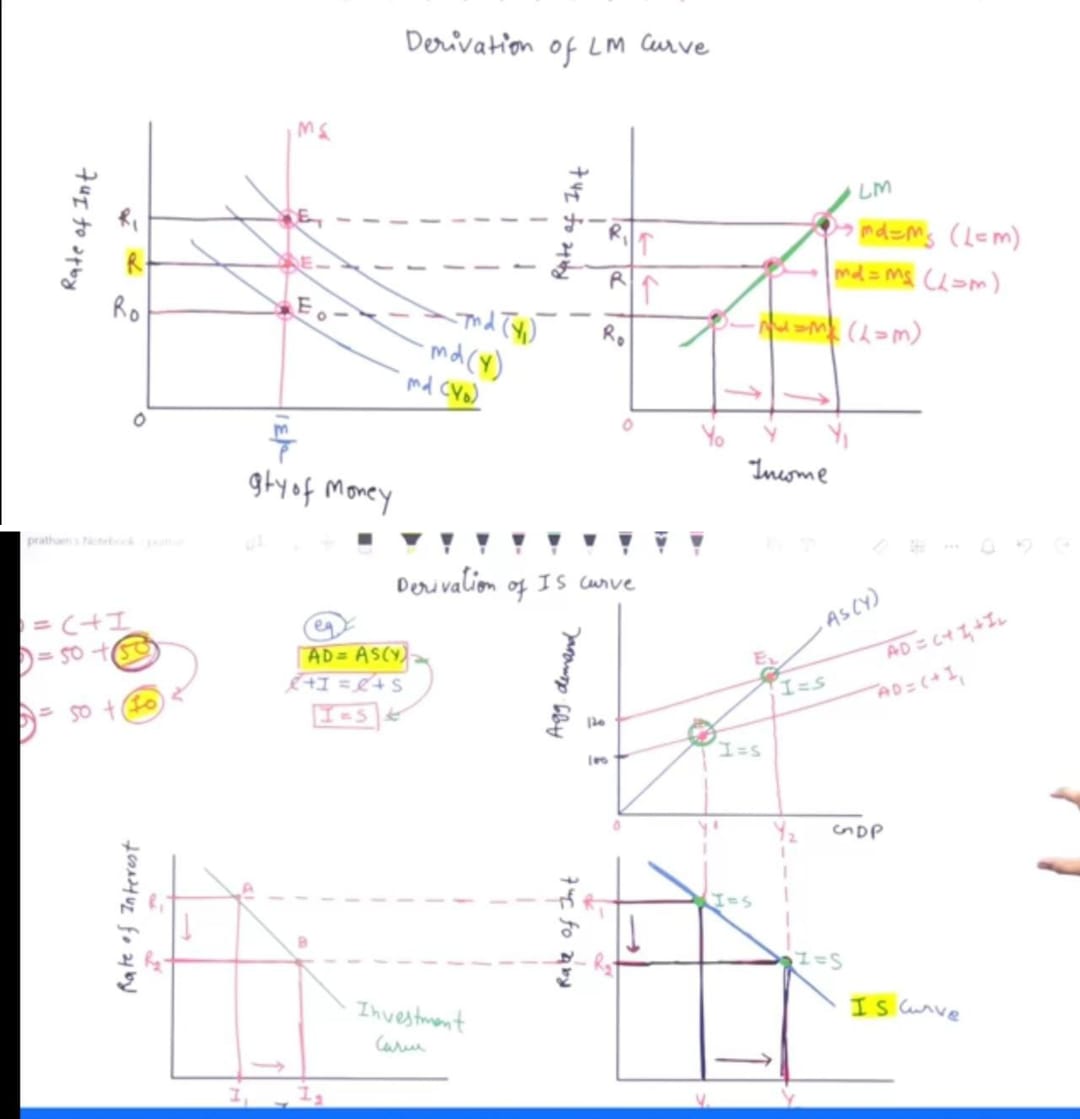 Derivation of LM Curve
Rate of Int
Ms
R1
R
R0
E1
E
E0
md(Y1)
md(Y)
md(Y0)
0
m̄/P
Qty of Money
Rate of Int
R1
R
R0
LM
md=Ms (L=m)
md=Ms (L=m)
md=Ms (L=m)
0
Y0
Y
Y1
Income
pratham's Notebook
Derivation of IS Curve
= C+I
= 50 + 50
= 50 + 70
eq
AD = AS(Y)
C+I = C+S
I=S
Agg demand
120
100
AS(Y)
AD=C+I1+I2
AD=C+I1
E2
I=S
I=S
0
Y1
Y2
GDP
Rate of Interest
R1
R2
A
B
Investment
Curve
I1
I2
Rate of Int
R1
R2
I=S
I=S
IS Curve
Y
Y